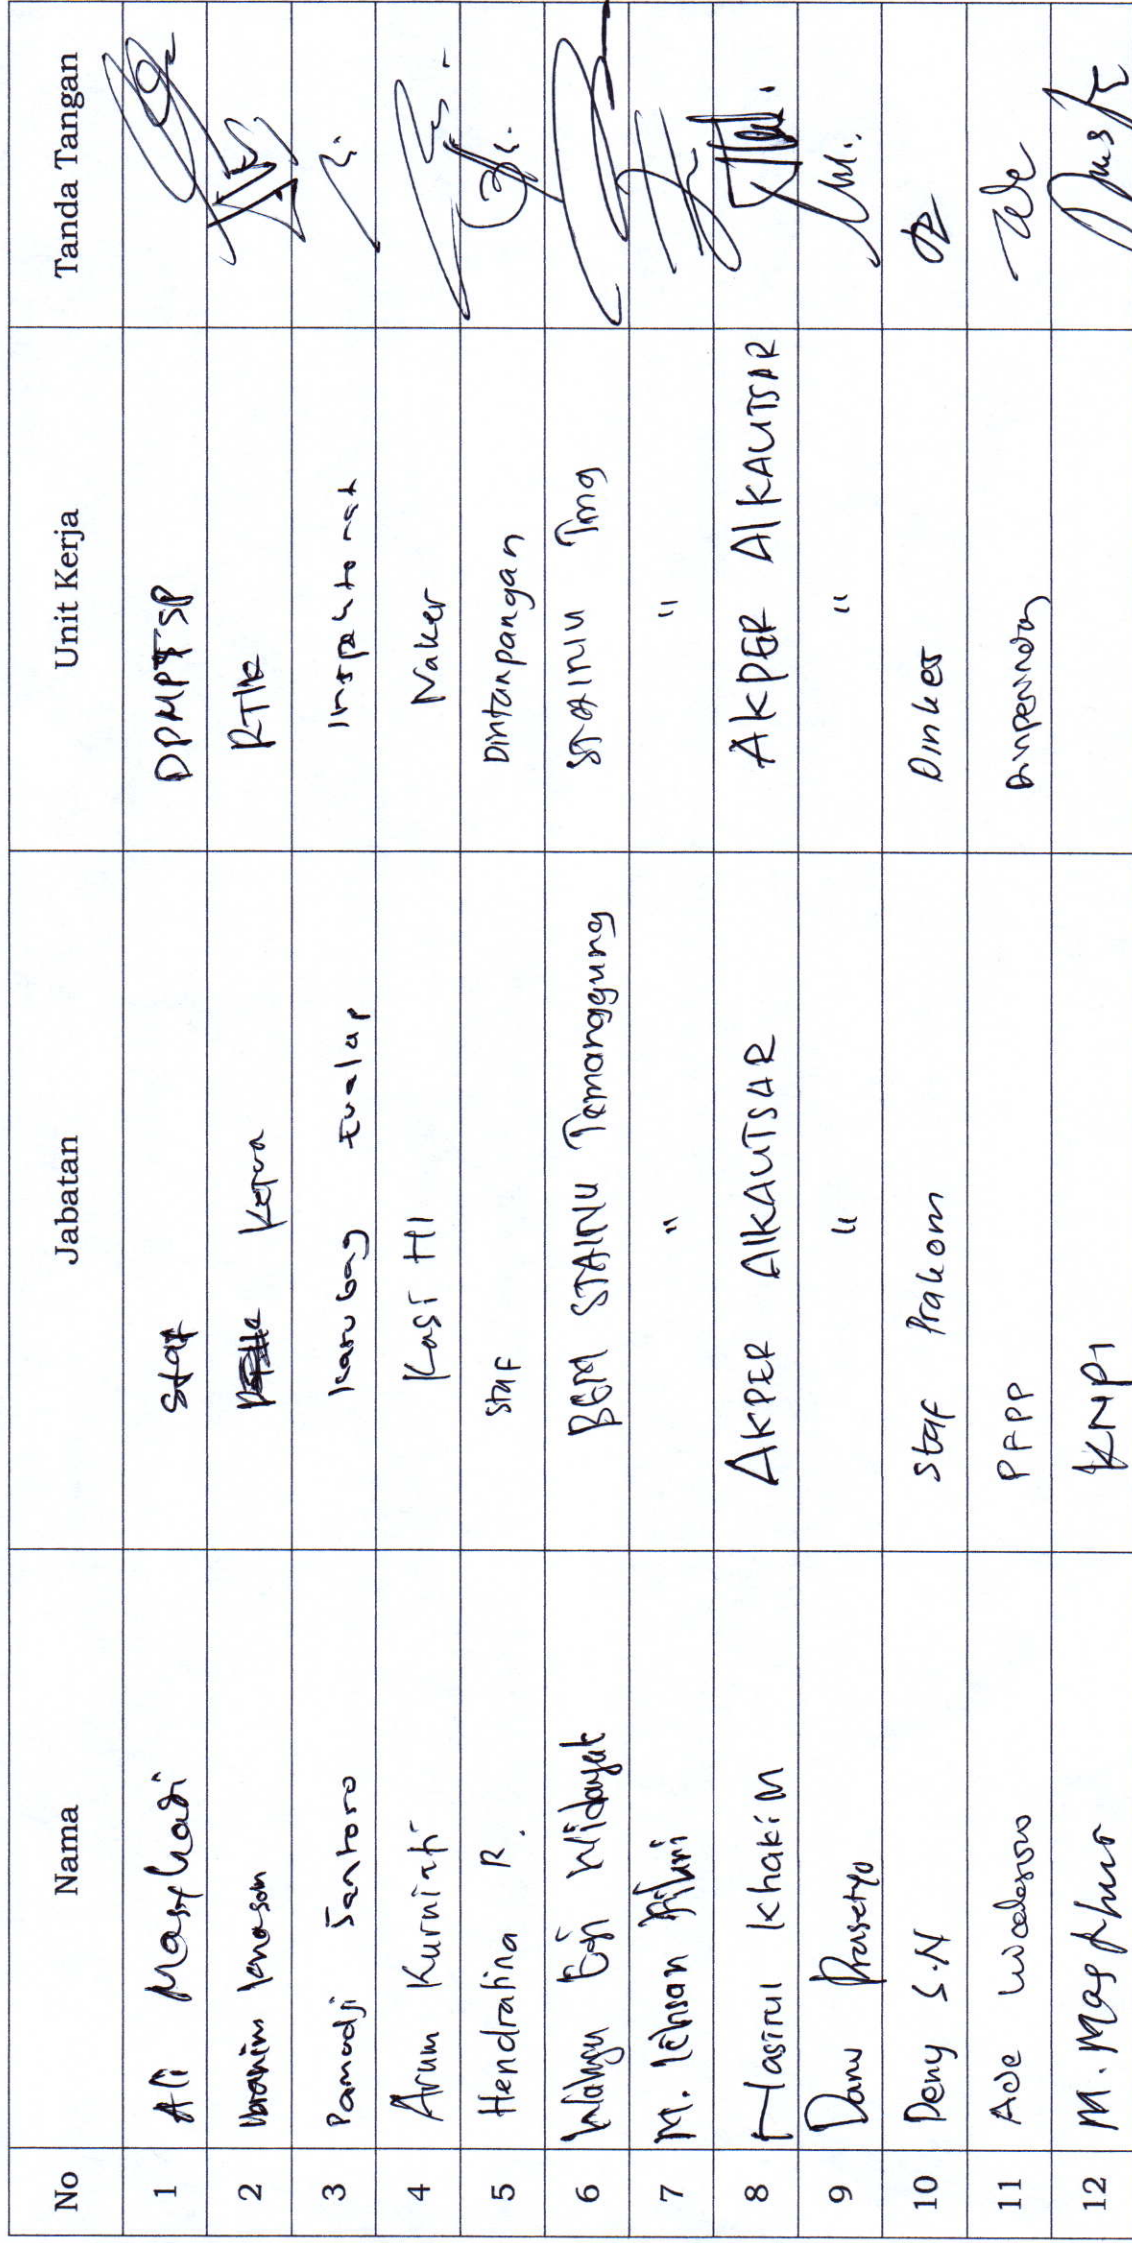 No Nama Jabatan Unit Kerja Tanda Tangan
1 Ali Masyhadi Staf DPMPTSP
2 Ibrahim Ketua RTIK
3 Pamudji Santoso Kasubbag Evalap Inspektorat
4 Arum Kurniati Kasi HI Naker
5 Hendratina R. Staf Dintanpangan
6 Wahyu Egi Widayat BEM STAINU Temanggung STAINU Tmg
7 M. Ichsan " "
8 Hasirul Khakim AKPER ALKAUTSAR AKPER ALKAUTSAR
9 Danu Prasetyo " "
10 Deny S.N Staf Prakom Dinkes
11 Ade Wicaksono PFPP Ade
12 M. Masykur KNPI